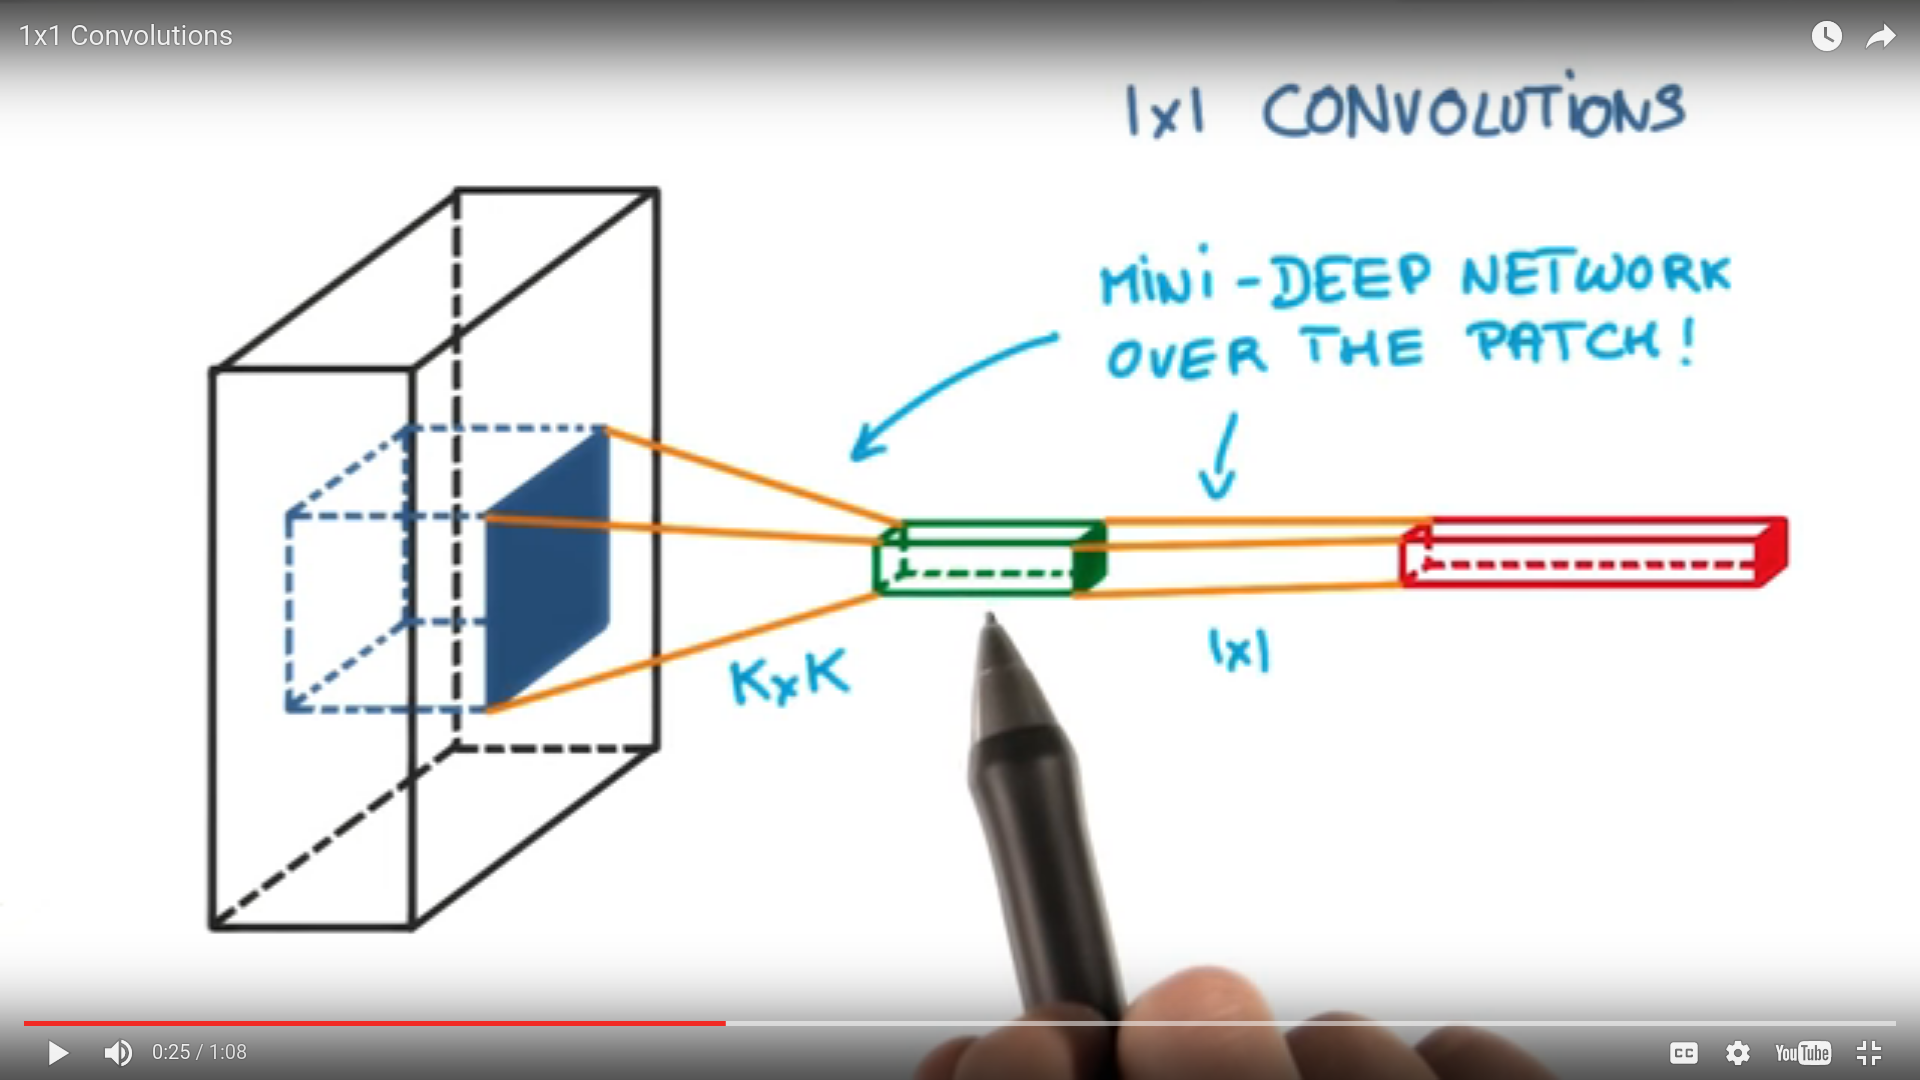 1x1 Convolutions
1x1 CONVOLUTiONS
MiNi-DEEP NETWORK
OVER THE PATCH!
KxK
1x1
0:25 / 1:08
CC
YouTube